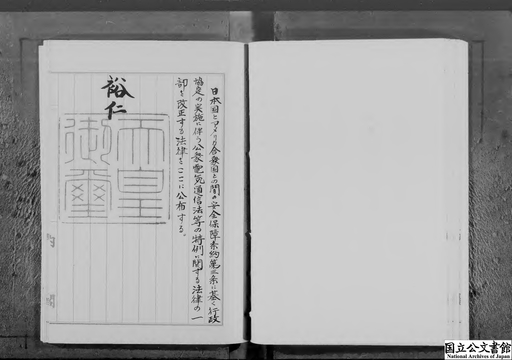 日本国とアメリカ合衆国との間の安全保障条約第三条に基く行政
協定の実施に伴う公衆電気通信法等の特例に関する法律の一
部を改正する法律をここに公布する。
裕仁
天皇
御璽
国立公文書館
National Archives of Japan